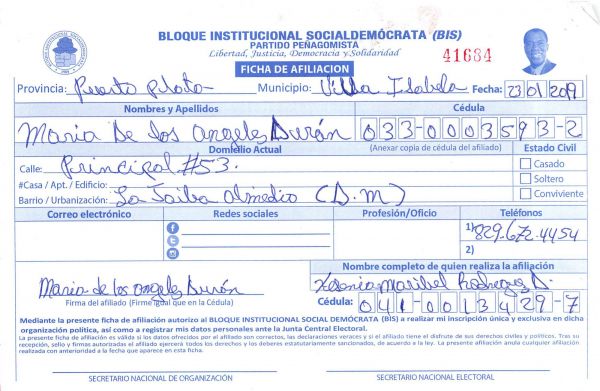 BLOQUE INSTITUCIONAL SOCIALDEMÓCRATA (BIS)
PARTIDO PEÑAGOMISTA
Libertad, Justicia, Democracia y Solidaridad
41684
FICHA DE AFILIACION
Provincia: Puerto Plata Municipio: Villa Isabela Fecha: 23 01 2019
Nombres y Apellidos Cédula
Maria De los Angeles Durán 033-0003593-2
Domicilio Actual (Anexar copia de cédula del afiliado) Estado Civil
Calle: Principal #53. Casado
#Casa / Apt. / Edificio: Soltero
Barrio / Urbanización: La Jaiba (D.M) Conviviente
Correo electrónico Redes sociales Profesión/Oficio Teléfonos
1) 829-672-4454
2)
Nombre completo de quien realiza la afiliación
Maria de los angeles Durán Maribel Rodriguez D.
Firma del afiliado (Firme igual que en la Cédula) Cédula: 041-0013429-7
Mediante la presente ficha de afiliación autorizo al BLOQUE INSTITUCIONAL SOCIAL DEMÓCRATA (BIS) a realizar mi inscripción única y exclusiva en dicha
organización política, así como a registrar mis datos personales ante la Junta Central Electoral.
La presente ficha de afiliación es válida si los datos ofrecidos por el afiliado son correctos, las declaraciones veraces y si el afiliado tiene el disfrute de sus derechos civiles y políticos. Tras su
recepción, sello y firmas autorizadas el afiliado ejercerá todos los derechos y los deberes estatutariamente sancionados, de acuerdo a la ley. La presente afiliación anula cualquier afiliación
realizada con anterioridad a la fecha que aparece en esta ficha.
SECRETARIO NACIONAL DE ORGANIZACIÓN SECRETARIO NACIONAL ELECTORAL